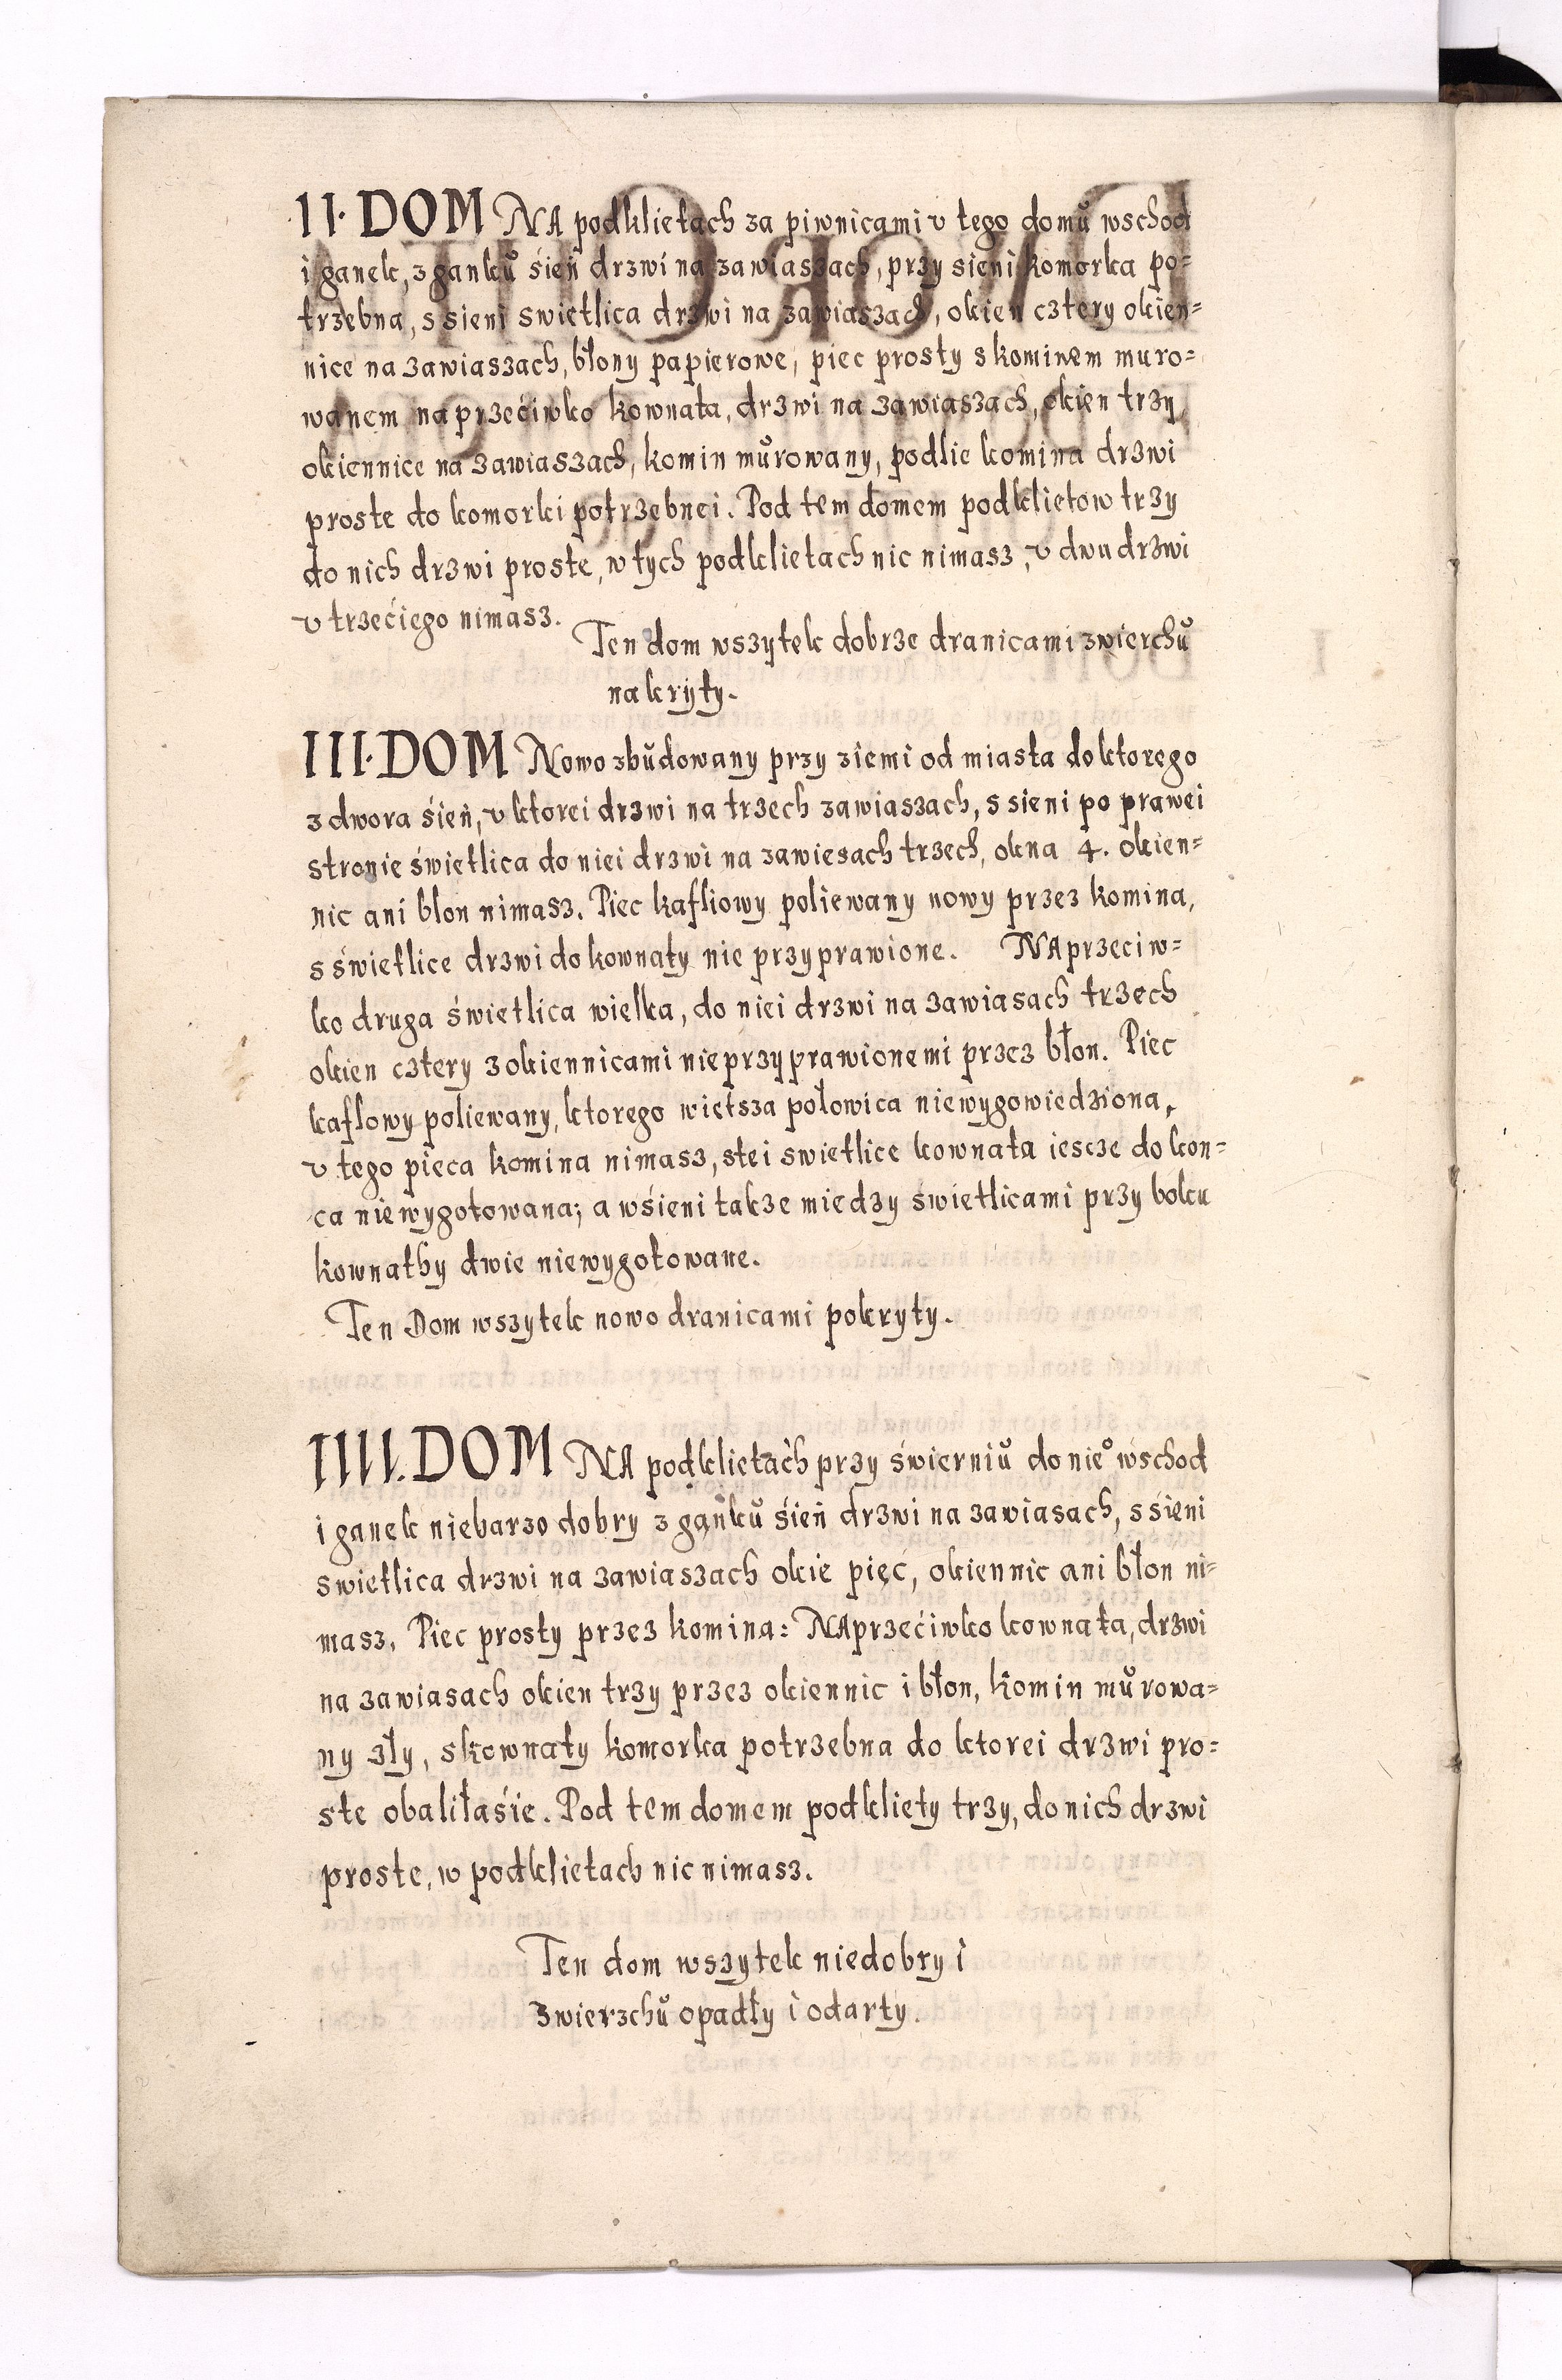 II. DOM NA podklietach za piwnicami v tego domů wschod
i ganek, z ganků śień drzwi na zawiaszach, przy sieni komorka po=
trzebna, s sieni swietlica drzwi na zawiaszach, okien cztery okien=
nice na zawiaszach, błony papierowe, piec prosty s kominem muro=
wanem naprzećiwko kownata, drzwi na zawiaszach, okien trzy
okiennice na zawiaszach, komin můrowany, podlie komina drzwi
proste do komorki potrzebnei. Pod tem domem podklietow trzy
do nich drzwi proste, w tych podklietach nic nimasz, v dwu drzwi
v trzećiego nimasz.
Ten dom wszytek dobrze dranicami zwierchů
nakryty.
III. DOM Nowo zbůdowany przy ziemi od miasta do ktorego
z dwora śień, v ktorei drzwi na trzech zawiaszach, s sieni po prawei
stronie świetlica do niei drzwi na zawiesach trzech, okna 4. okien=
nic ani blon nimasz. Piec kafliowy poliewany nowy przez komina,
s świetlice drzwi do kownaty nie przyprawione. NAprzeciw=
ko druga świetlica wielka, do niei drzwi na zawiasach trzech
okien cztery z okiennicami nieprzyprawionemi przez błon. Piec
kaflowy poliewany, ktorego wietsza połowica niewygowiedziona,
v tego pieca komina nimasz, stei swietlice kownata iescze do kon=
ca niewygotowana; a wśieni takze miedzy świetlicami przy boku
kownathy dwie niewygotowane.
Ten Dom wszytek nowo dranicami pokryty.
IIII. DOM NA podklietach przy świerniů do nie° wschod
i ganek niebarzo dobry z ganků śień drzwi na zawiasach, s śieni
swietlica drzwi na zawiaszach okie pięć, okiennic ani błon ni=
masz. Piec prosty przez komina: NAprzećiwko kownata, drzwi
na zawiasach okien trzy przez okiennic i błon, komin můrowa=
ny zły, skownaty komorka potrzebna do ktorei drzwi pro=
ste obaliłaśie. Pod tem domem podkliety trzy, do nich drzwi
proste, w podklietach nic nimasz.
Ten dom wszytek niedobry i
zwierzchů opadły i odarty.